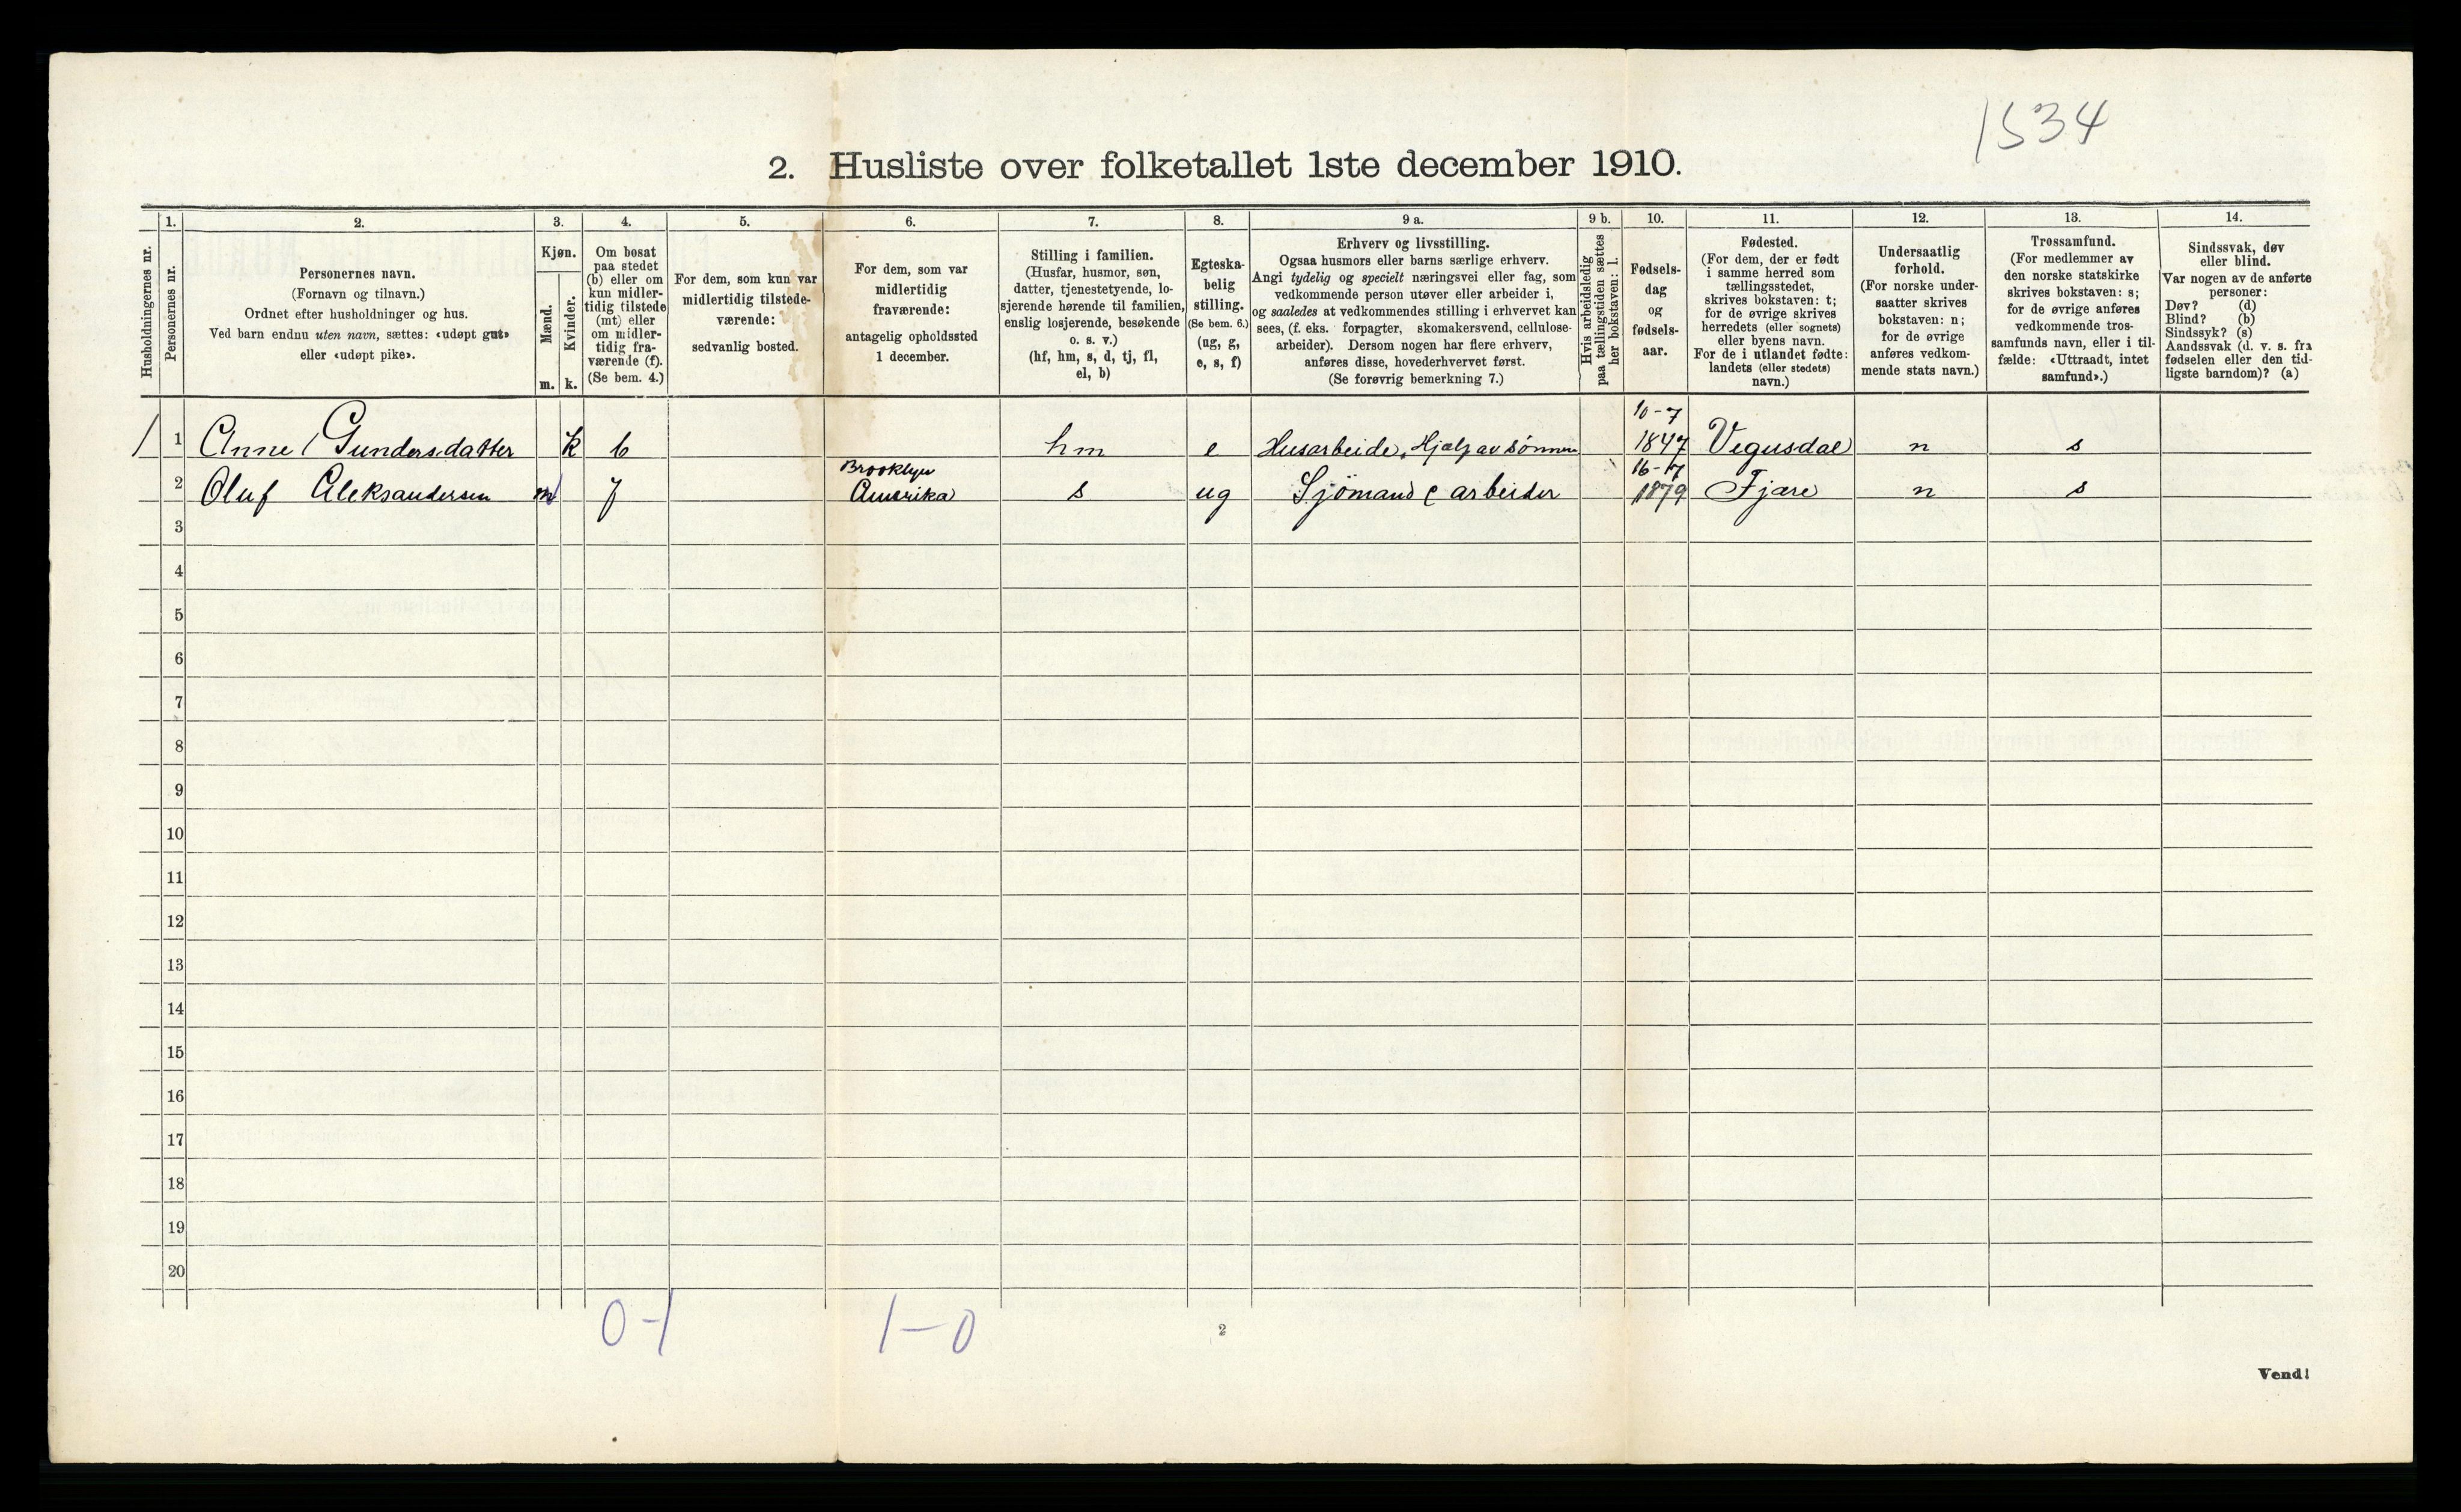 1534
2. Husliste over folketallet 1ste december 1910.
Husholdningernes nr.
1.
Personernes nr.
2.
Personernes navn.
(Fornavn og tilnavn.)
Ordnet efter husholdninger og hus.
Ved barn endnu uten navn, sættes: «udøpt gut»
eller «udøpt pike».
3.
Kjøn.
Mænd.
Kvinder.
m. k.
4.
Om bosat
paa stedet
(b) eller om
kun midler-
tidig tilstede
(mt) eller
om midler-
tidig fra-
værende (f).
(Se bem. 4.)
5.
For dem, som kun var
midlertidig tilstede-
værende:
sedvanlig bosted.
6.
For dem, som var
midlertidig
fraværende:
antagelig opholdssted
1 december.
7.
Stilling i familien.
(Husfar, husmor, søn,
datter, tjenestetyende, lo-
sjerende hørende til familien,
enslig losjerende, besøkende
o. s. v.)
(hf, hm, s, d, tj, fl,
el, b)
8.
Egteska-
belig
stilling.
(Se bem. 6.)
(ug, g,
e, s, f)
9 a.
Erhverv og livsstilling.
Ogsaa husmors eller barns særlige erhverv.
Angi tydelig og specielt næringsvei eller fag, som
vedkommende person utøver eller arbeider i,
og saaledes at vedkommendes stilling i erhvervet kan
sees, (f. eks. forpagter, skomakersvend, cellulose-
arbeider). Dersom nogen har flere erhverv,
anføres disse, hovederhvervet først.
(Se forøvrig bemerkning 7.)
9 b.
Hvis arbeidsledig
paa tællingstiden sættes
her bokstaven: l.
10.
Fødsels-
dag
og
fødsels-
aar.
11.
Fødested.
(For dem, der er født
i samme herred som
tællingsstedet,
skrives bokstaven: t;
for de øvrige skrives
herredets (eller sognets)
eller byens navn.
For de i utlandet fødte:
landets (eller stedets)
navn.)
12.
Undersaatlig
forhold.
(For norske under-
saatter skrives
bokstaven: n;
for de øvrige
anføres vedkom-
mende stats navn.)
13.
Trossamfund.
(For medlemmer av
den norske statskirke
skrives bokstaven: s;
for de øvrige anføres
vedkommende tros-
samfunds navn, eller i til-
fælde: «Uttraadt, intet
samfund».)
14.
Sindssvak, døv
eller blind.
Var nogen av de anførte
personer:
Døv? (d)
Blind? (b)
Sindssyk? (s)
Aandssvak (d. v. s. fra
fødselen eller den tid-
ligste barndom)? (a)
10-7
1 1 Anne Gundersdatter k b hm e Husarbeide, Hjælp av sønnen 1847 Vegusdal n s
Brooklyn 16-7
2 Oluf Aleksandersen m f Amerika s ug Sjömand & arbeider 1879 Fjære n s
3
4
5
6
7
8
9
10
11
12
13
14
15
16
17
18
19
20
0-1 1-0
2
Vend!